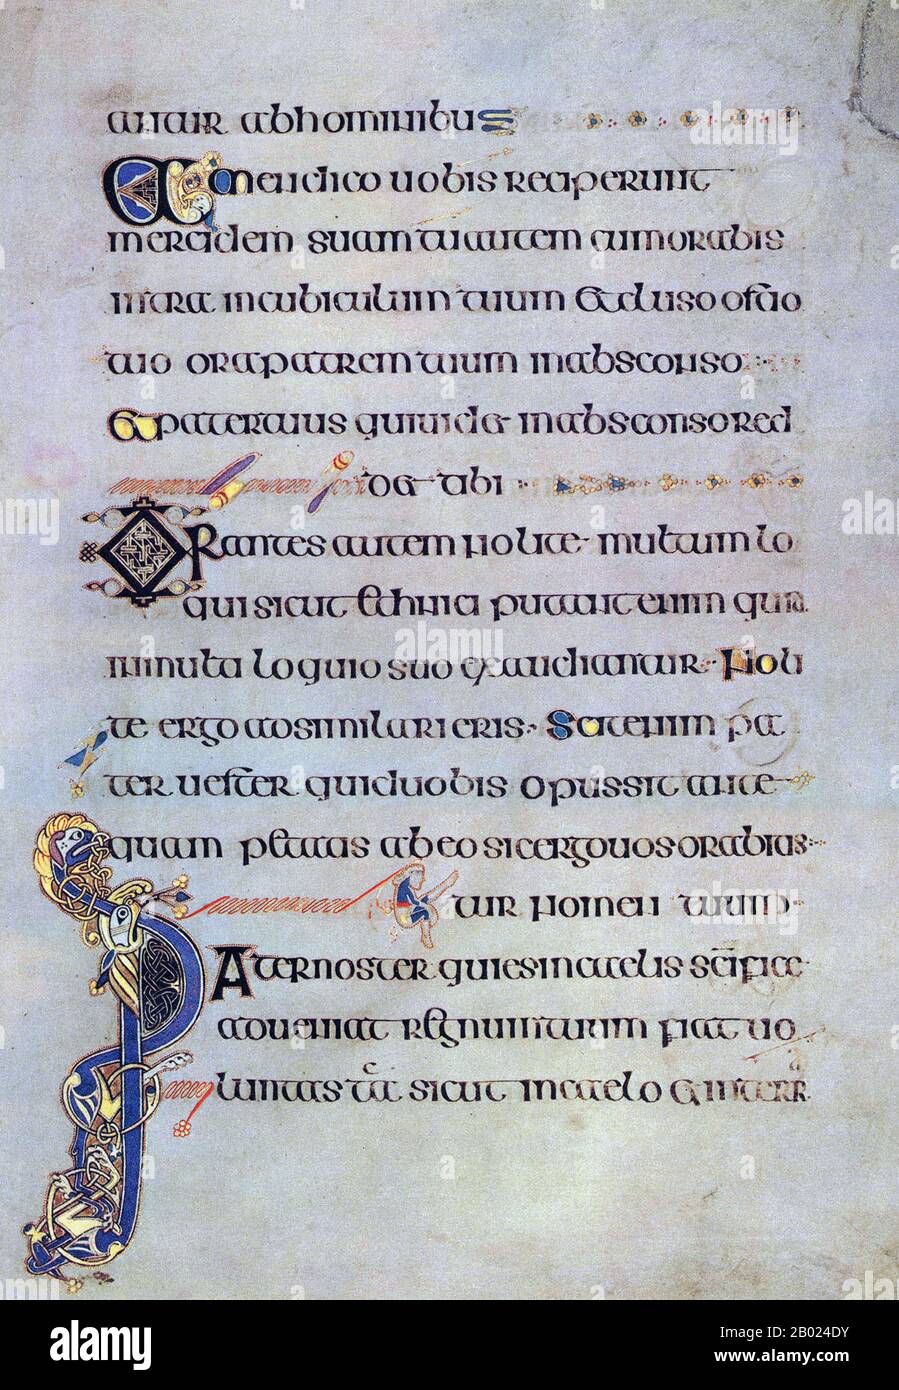 antur abhominibus
Amendico uobis reciperunt
mercidem suam tuautem cumorabis
intra incubiculum tuum &cluso ostio
tuo orapatrem tuum inabsconso
&pater tuus quiuidet inabsconso red
det tibi
Orantes autem nolite multum lo
qui sicut ethnici putant enim quia
inmulti loquio suo exaudiantur Noli
te ergo adsimilari eris Scit enim pa
ter uester quiduobis opussit ante
quam petatis abeo sicergouos orabitis
tur nomen tuum
Pater noster quies incaelis scifice
adueniat regnum tuum fiat uo
luntas tua sicut incaelo &interra
alamy
alamy
Image ID: 2B024DY
www.alamy.com